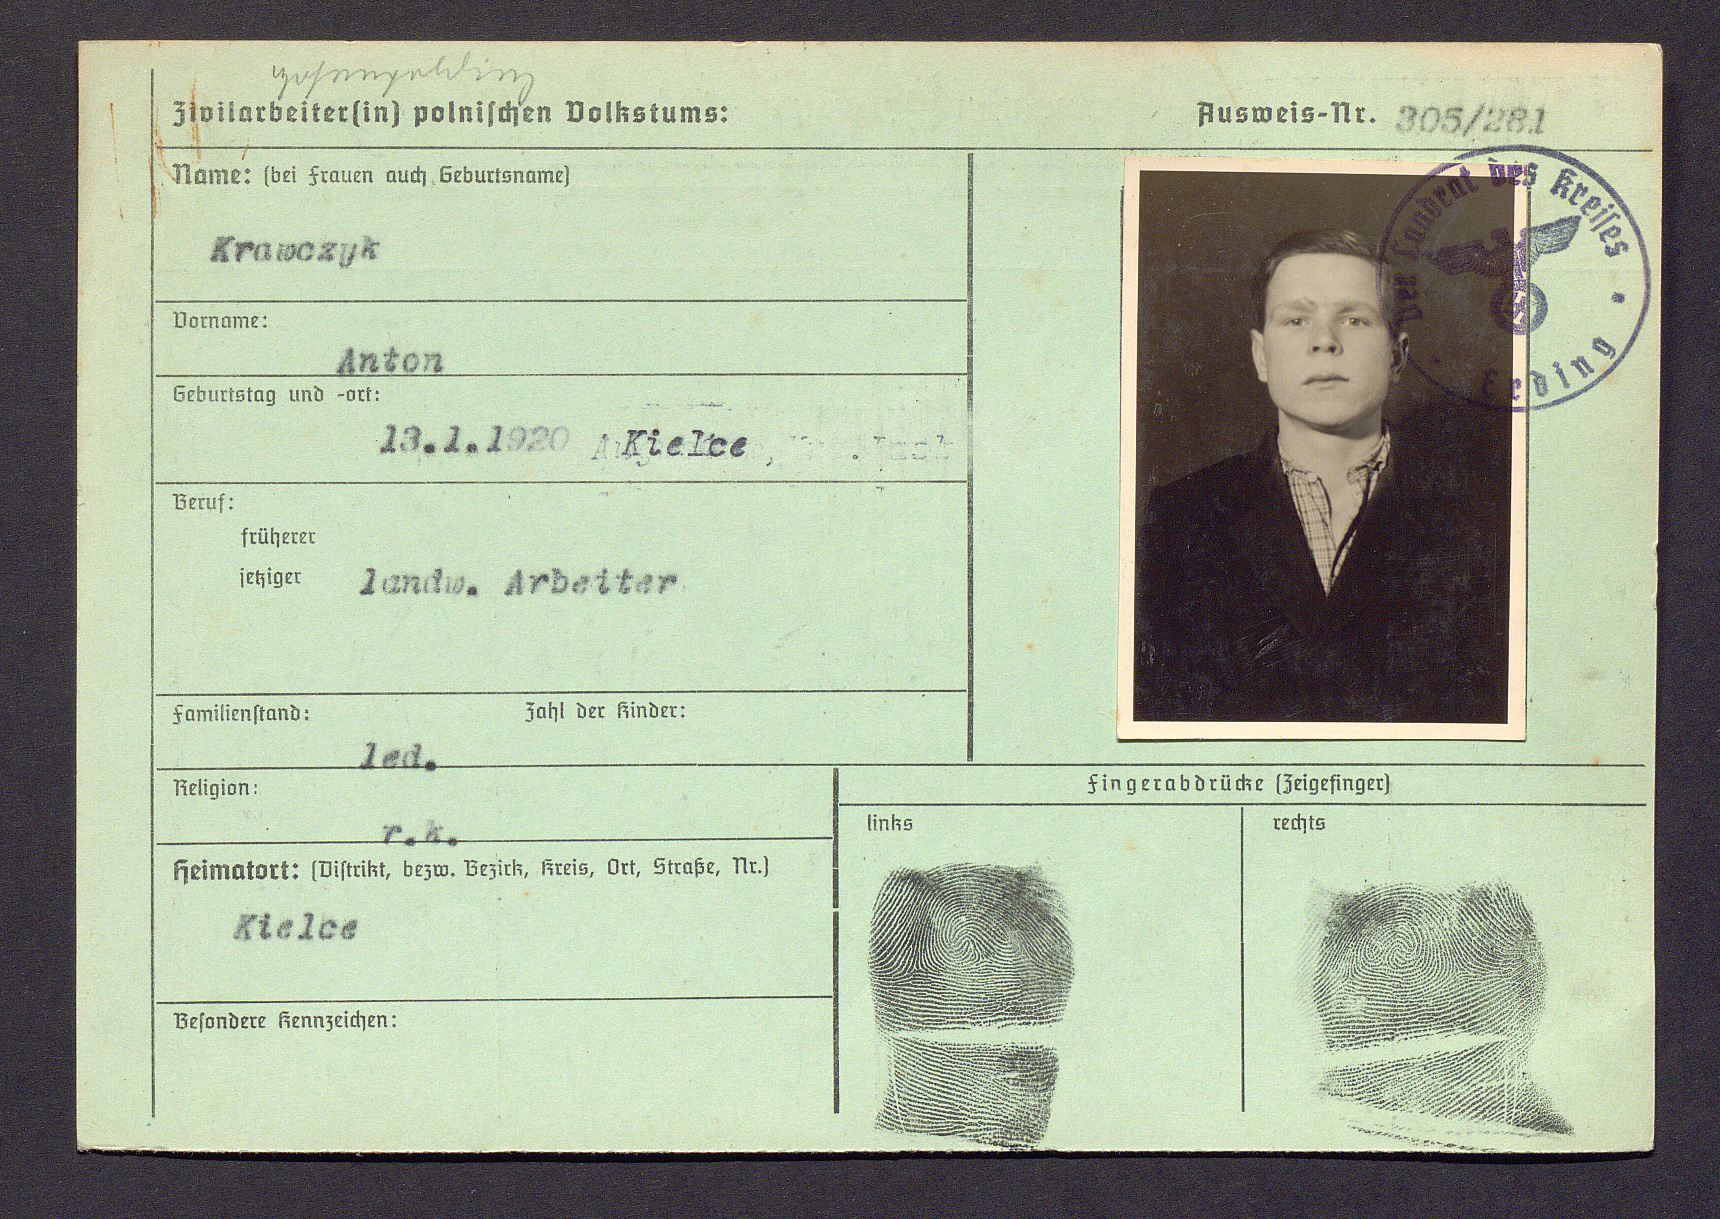 Zivilarbeiter(in) polnischen Volkstums:
Ausweis-Nr. 305/281
Name: (bei Frauen auch Geburtsname)
Krawczyk
Vorname:
Anton
Geburtstag und -ort:
13.1.1920 Kielce
Beruf:
früherer
jetziger landw. Arbeiter
Familienstand: Zahl der Kinder:
led.
Religion:
r.k.
Heimatort: (Distrikt, bezw. Bezirk, Kreis, Ort, Straße, Nr.)
Kielce
Besondere Kennzeichen:
Der Landrat des Kreises
Erding
Fingerabdrücke (Zeigefinger)
links rechts